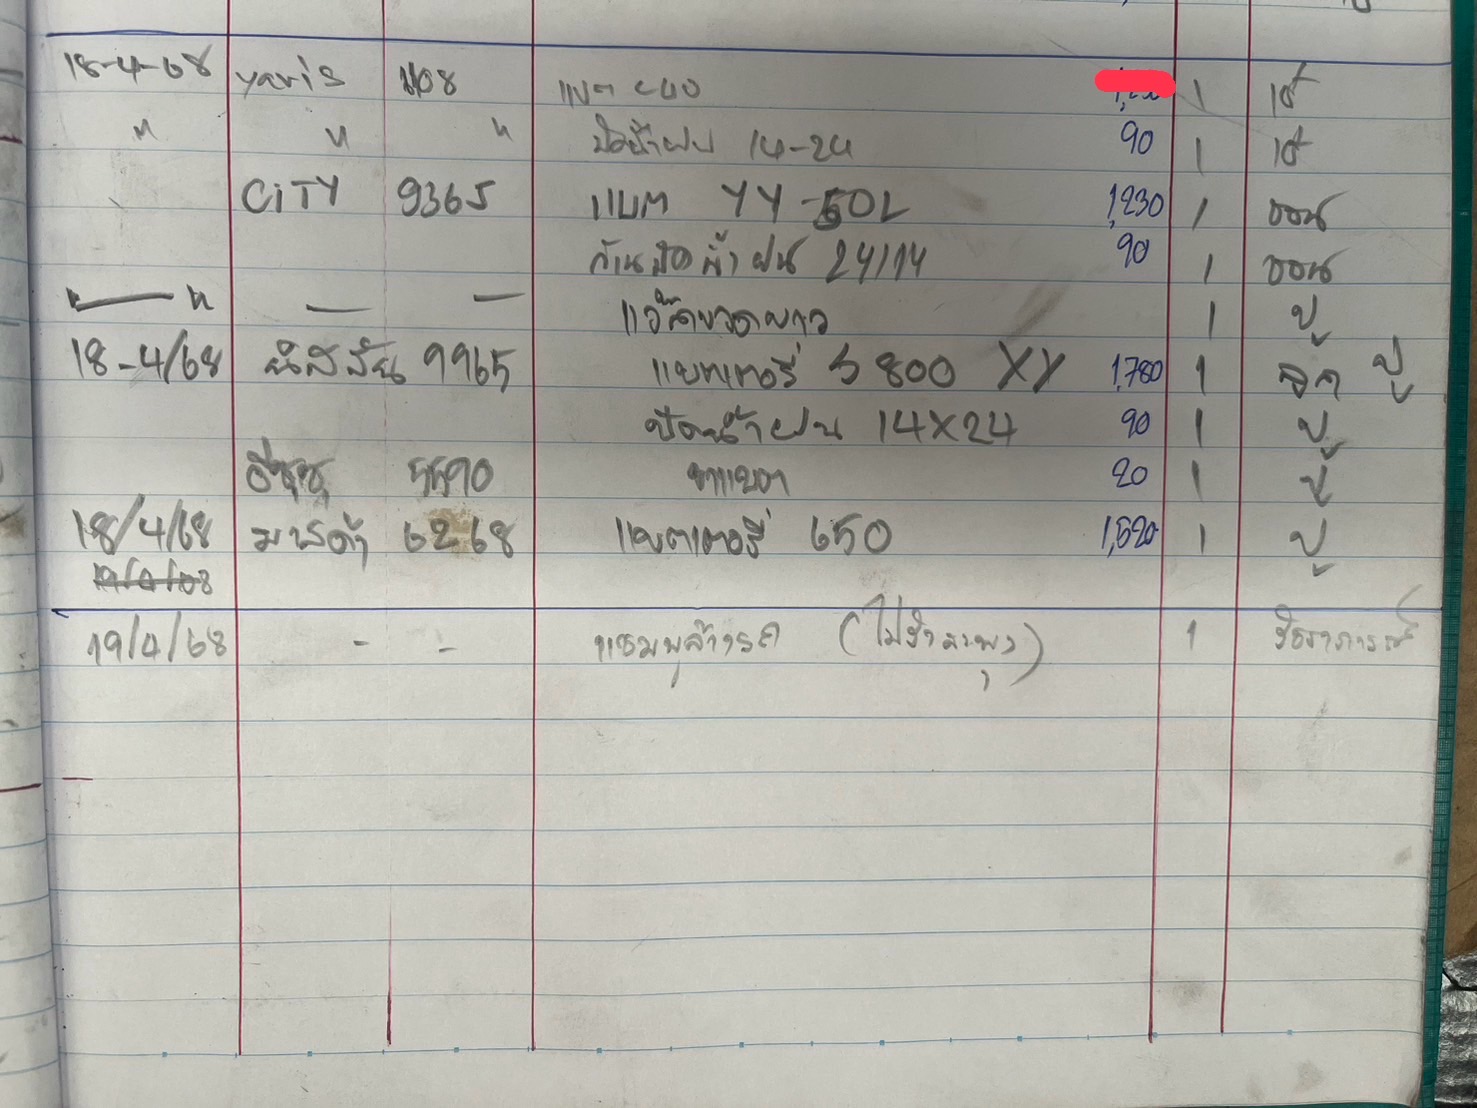 18-4-68 yaris 1108 แบต L40 1
" " " ปัดน้ำฝน 14-24 90 1
CiTY 9365 แบต YY-50L 1,230 1 ออน
ก้านปัดน้ำฝน 24/14 90 1 ออน
" — " — — แว๊กขวดยาว 1 ปู
18-4/68 นิสสัน 9965 แบตเตอรี่ S 800 XY 1,780 1 ปู
ปัดน้ำฝน 14X24 90 1 ปู
อีซูซุ 5590 ขาแบต 20 1 ปู
18/4/68 มาสด้า 6268 แบตเตอรี่ 650 1,520 1 ปู
19/4/68 - - แชมพูล้างรถ 1